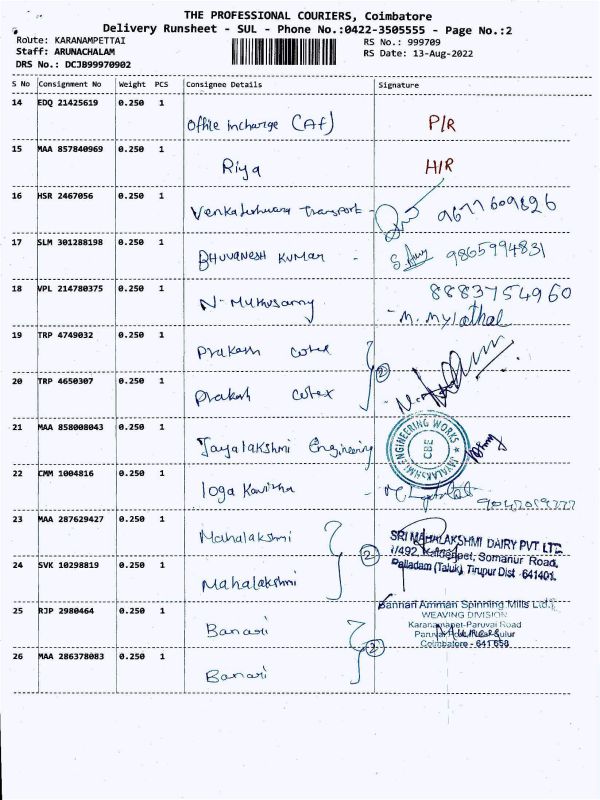 THE PROFESSIONAL COURIERS, Coimbatore
Delivery Runsheet - SUL - Phone No.:0422-3505555 - Page No.:2
Route: KARANAMPETTAI RS No.: 999709
Staff: ARUNACHALAM RS Date: 13-Aug-2022
DRS No.: DCJB99970902
S No Consignment No Weight PCS Consignee Details Signature
14 EDQ 21425619 0.250 1
Office incharge (Af) P/R
15 MAA 857840969 0.250 1
Riya H/R
16 HSR 2467056 0.250 1
Venkateshwara Transport - 9677609826
17 SLM 301288198 0.250 1
BHUVANESH KUMAR - 9865994831
18 VPL 214780375 0.250 1 8883754960
N. Muthusamy - M. Mylathal
19 TRP 4749032 0.250 1
Prakash cotex
2
20 TRP 4650307 0.250 1
Prakash cotex
21 MAA 858008043 0.250 1
Jayalakshmi Engineering
JAYALAKSHMI ENGINEERING WORKS
CBE
22 CMM 1004816 0.250 1
Ioga Kavitha -
23 MAA 287629427 0.250 1
Mahalaksmi SRI MAHALAKSHMI DAIRY PVT LTD.
2 Somanur Road,
24 SVK 10298819 0.250 1 Palladam (Taluk), Tirupur Dist - 641401.
Mahalakshmi
25 RJP 2980464 0.250 1 Bannari Amman Spinning Mills Ltd.,
WEAVING DIVISION
Banari Karanampet-Paruvai Road
Sulur
2 Coimbatore - 641 658
26 MAA 286378083 0.250 1
Banari